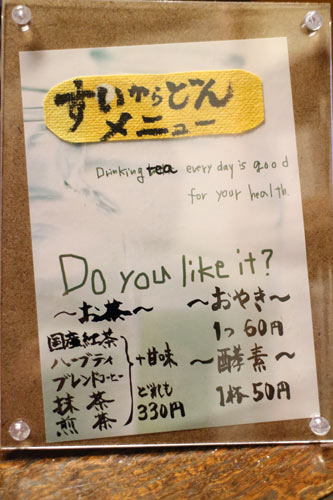 すいからどん
メニュー
Drinking tea every day is good
for your health.
Do you like it?
～お茶～
国産紅茶
ハーブティ
ブレンドコーヒー
抹茶
煎茶
+甘味
どれも
330円
～おやき～
1つ60円
～酵素～
1杯50円